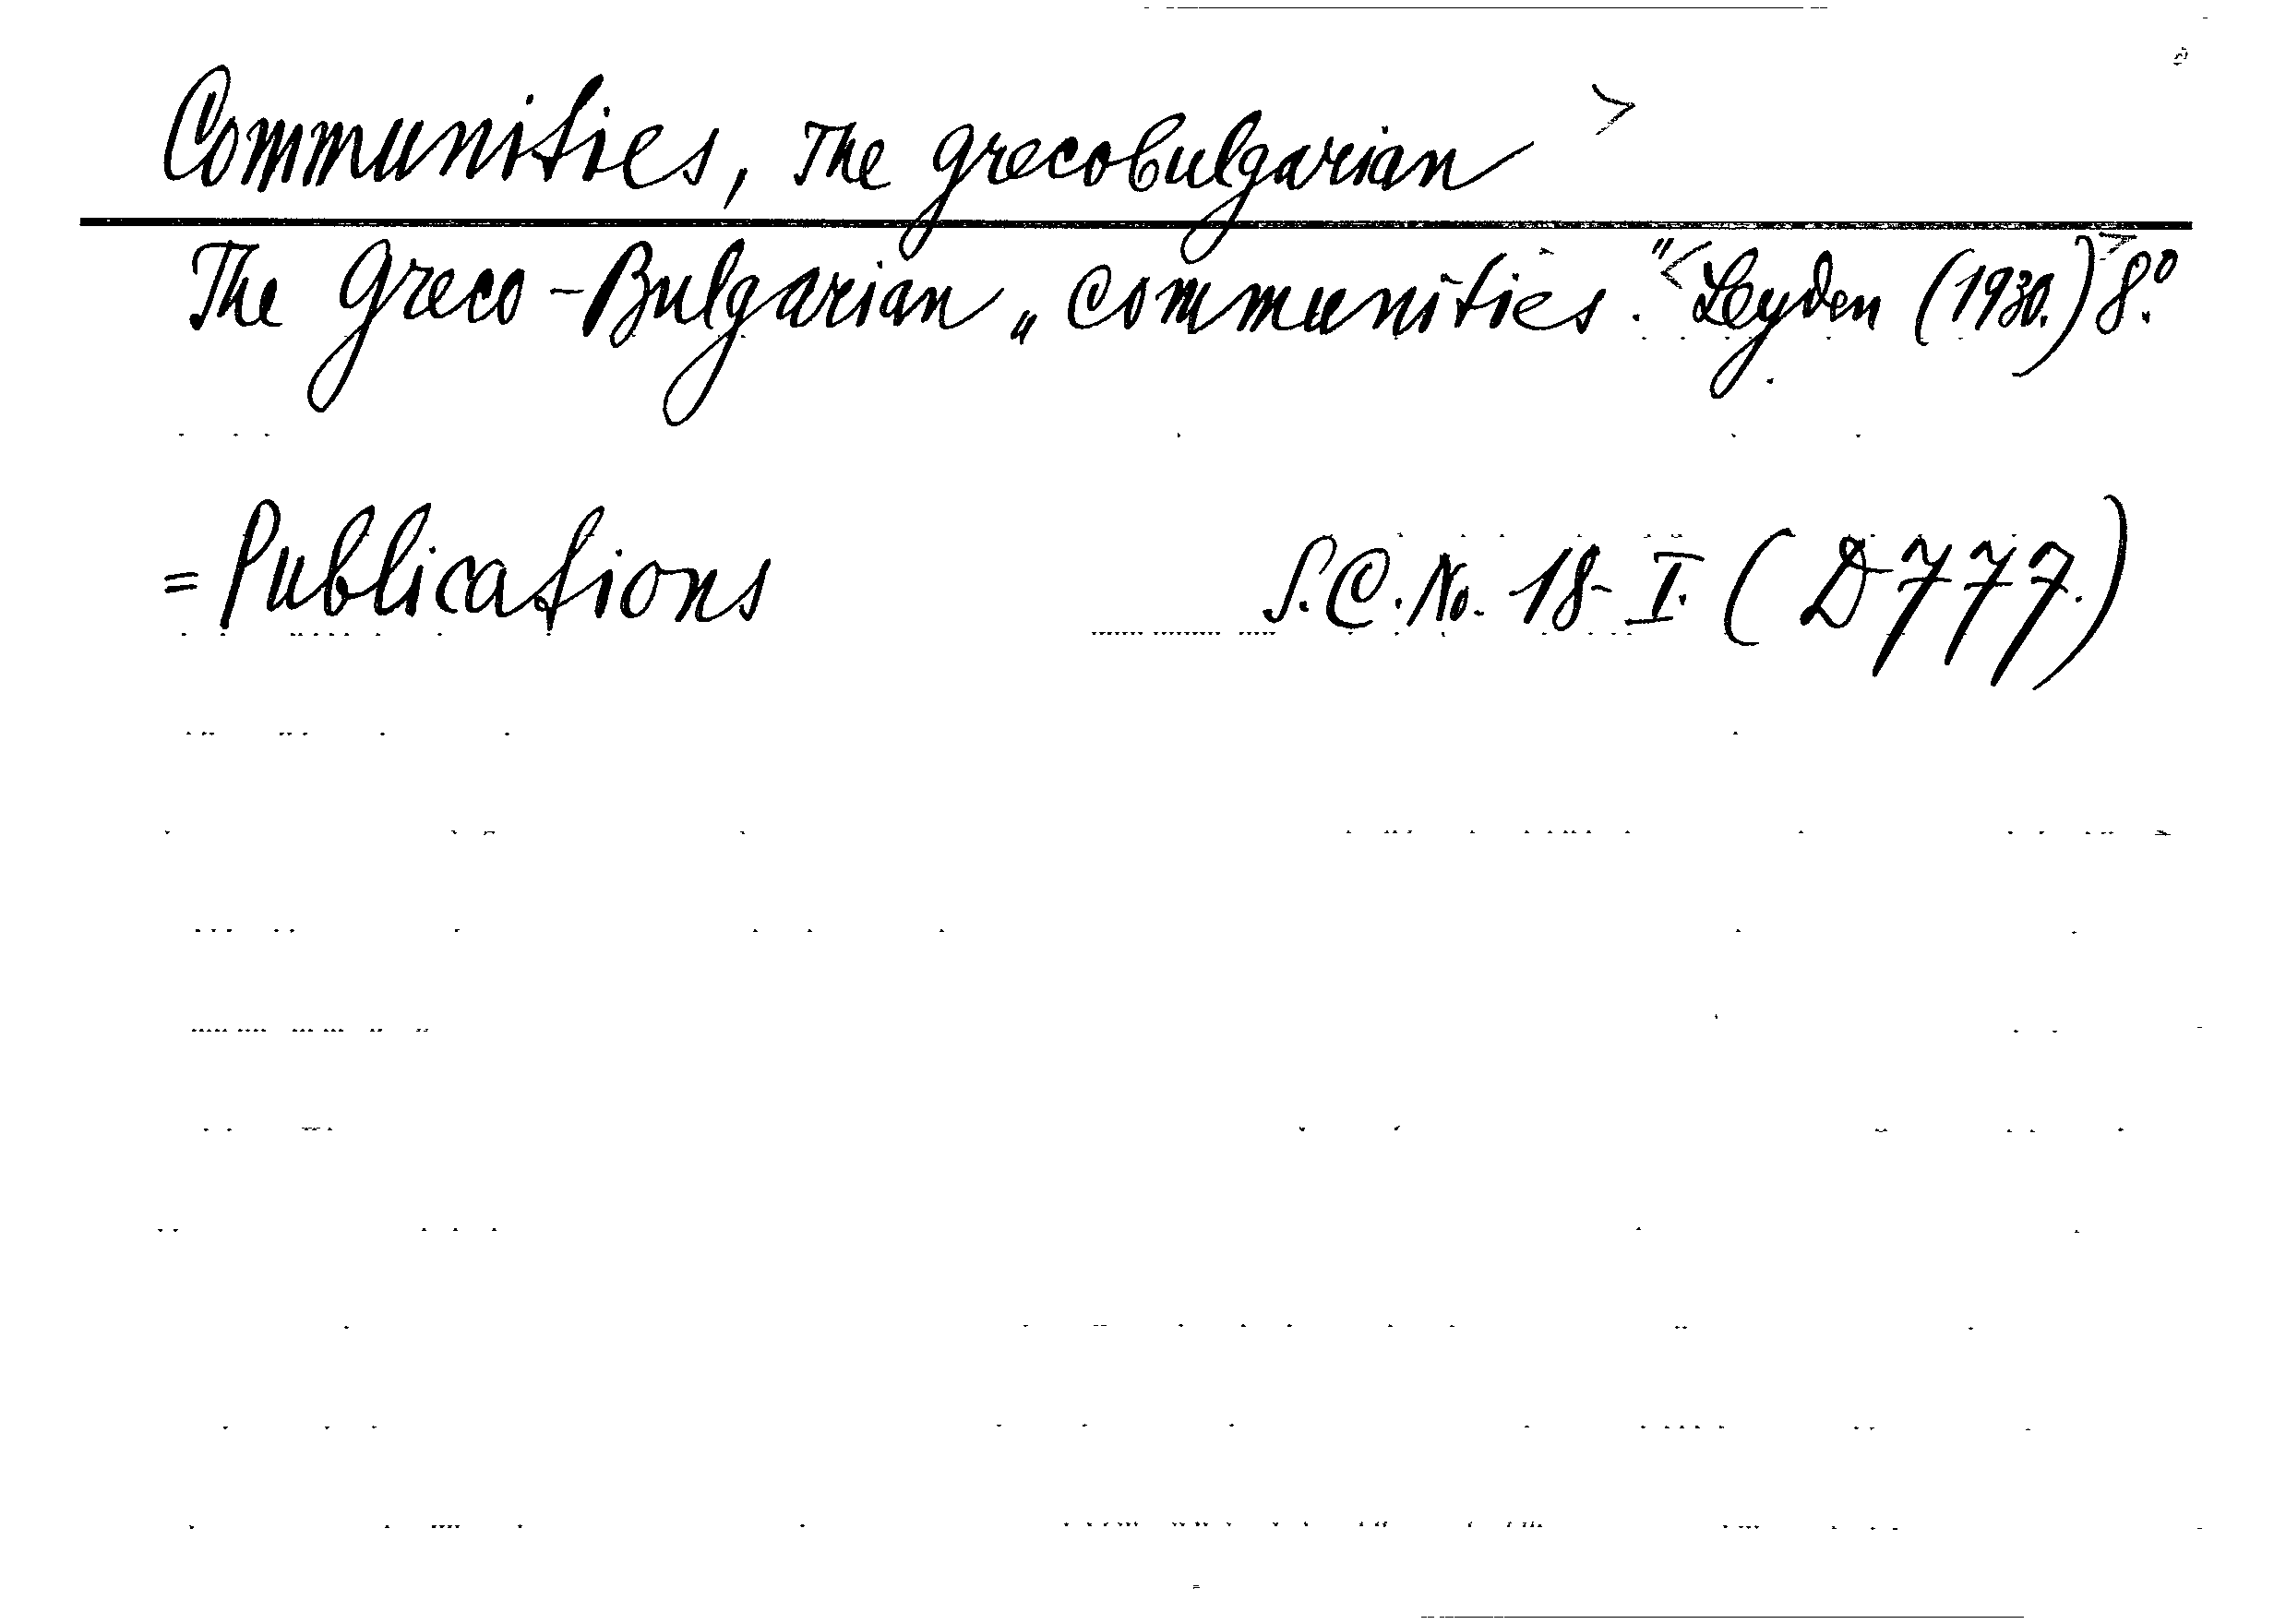 Communities, The grecobulgarian >
The Greco-Bulgarian „Communities." < Leyden (1930.) > 8.º
= Publications S.C. No. 18-I. (D777.)